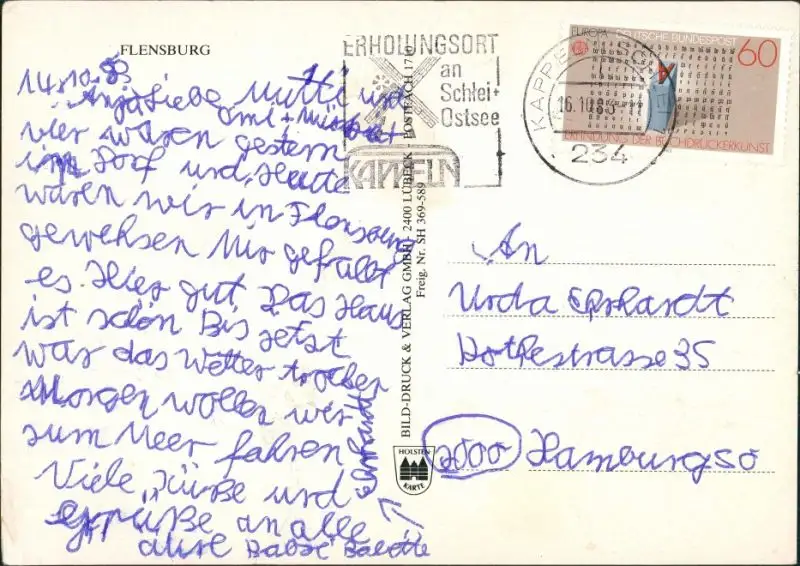 FLENSBURG
14.10.83
Liebe Mutti und
Omi +
vier waren gestern
im Dorf und Heute
waren wir in Flensburg
gewehsen Mir gefällt
es Hier gut Das Haus
ist schön Bis Jetzt
war das Wetter trocken
Morgen wollen wir
zum Meer fahren
Viele Süße und
grüße an alle
eure Babsi Babette
BILD-DRUCK & VERLAG GMBH · 2400 LÜBECK · POSTFACH 1710
Freig. Nr. SH 369-589
HOLSTEN
KARTE
ERHOLUNGSORT
an
Schlei+
Ostsee
KAPPELN
KAPPELN
16.10.83-11
234
EUROPA DEUTSCHE BUNDESPOST
60
ERFINDUNG DER BUCHDRUCKERKUNST
An
Urda
35
2000 Hamburg 50